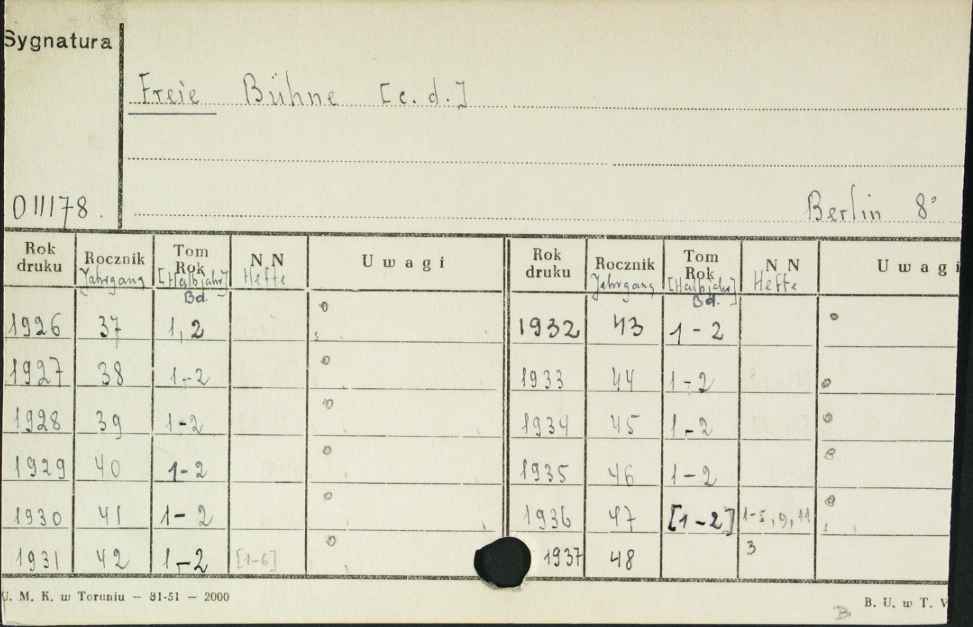 Sygnatura
Freie Bühne [c.d.]
011178. Berlin 8°
Rok druku Rocznik Jahrgang Tom Rok [Halbjahr] Bd. NN Hefte Uwagi Rok druku Rocznik Jahrgang Tom Rok [Halbjahr] Bd. NN Hefte Uwagi
1926 37 1,2 1932 43 1-2
1927 38 1-2 1933 44 1-2
1928 39 1-2 1934 45 1-2
1929 40 1-2 1935 46 1-2
1930 41 1-2 1936 47 [1-2] 1-5, 9, 11
1931 42 1-2 [1-6] 1937 48 3
U. M. K. w Toruniu — 81-51 — 2000 B B. U. w T.